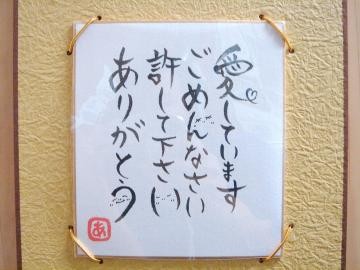 愛しています
ごめんなさい
許して下さい
ありがとう
あ